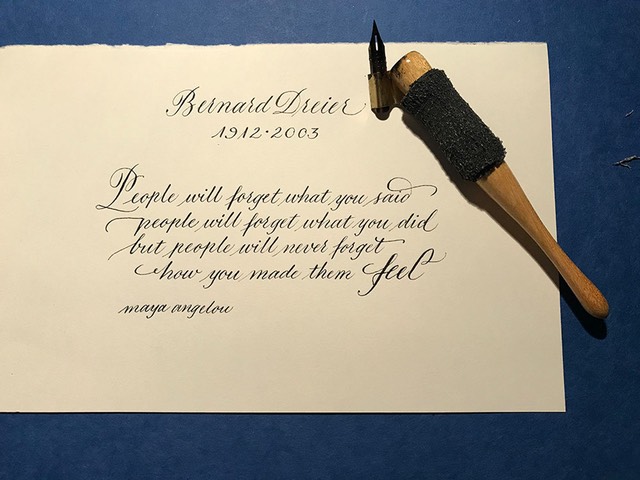 Bernard Dreier
1912·2003
People will forget what you said
people will forget what you did
but people will never forget
how you made them feel
maya angelou